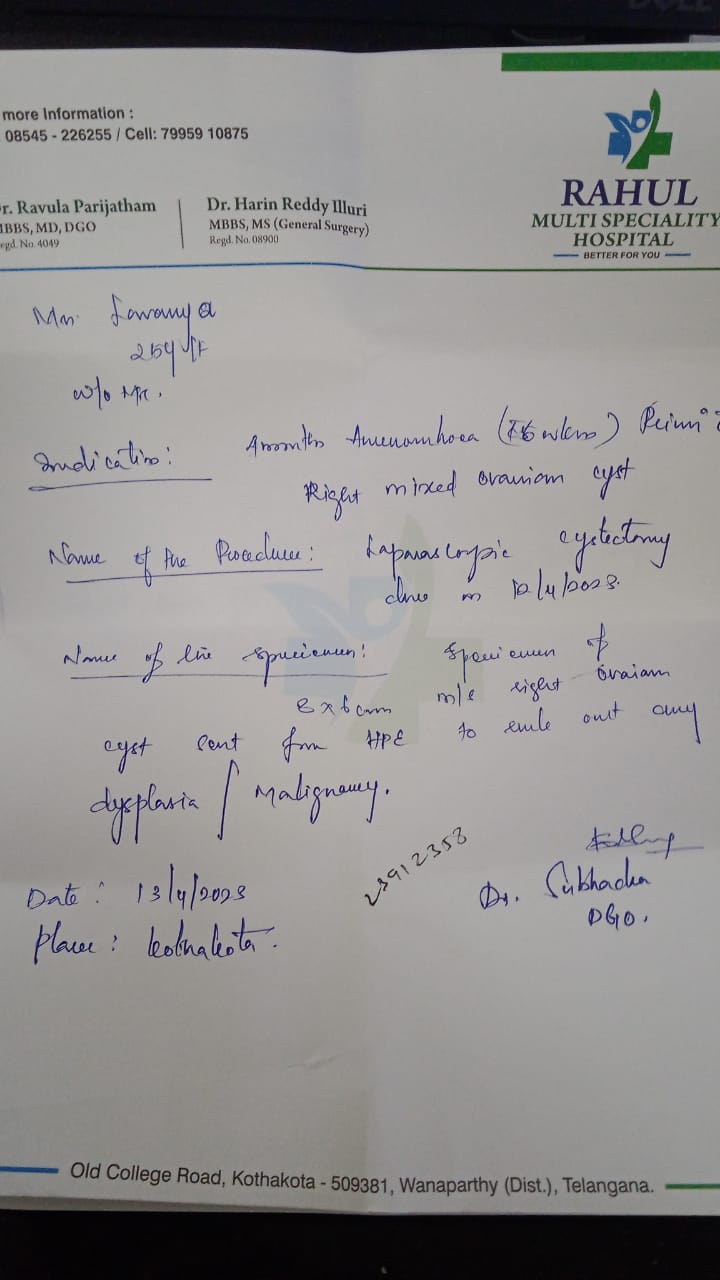 more Information :
08545 - 226255 / Cell: 79959 10875
r. Ravula Parijatham
MBBS, MD, DGO
egd. No. 4049
Dr. Harin Reddy Illuri
MBBS, MS (General Surgery)
Regd. No. 08900
RAHUL
MULTI SPECIALITY
HOSPITAL
BETTER FOR YOU
Lavanya
25y/F
w/o Mr.
Indication: Amenorrhoea
Right mixed ovarian cyst
Name of the Procedure: Laparoscopic cystectomy
done on 12/4/2023.
Name of the specimen: Specimen of
8x6cm m/s right ovarian
cyst sent for HPE to rule out any
dysplasia / Malignancy.
23912358
Date: 13/4/2023
Place: kothakota.
Dr. Subhadra
DGO.
Old College Road, Kothakota - 509381, Wanaparthy (Dist.), Telangana.